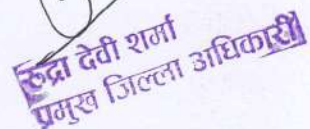 रुद्रा देवी शर्मा
प्रमुख जिल्ला अधिकारी